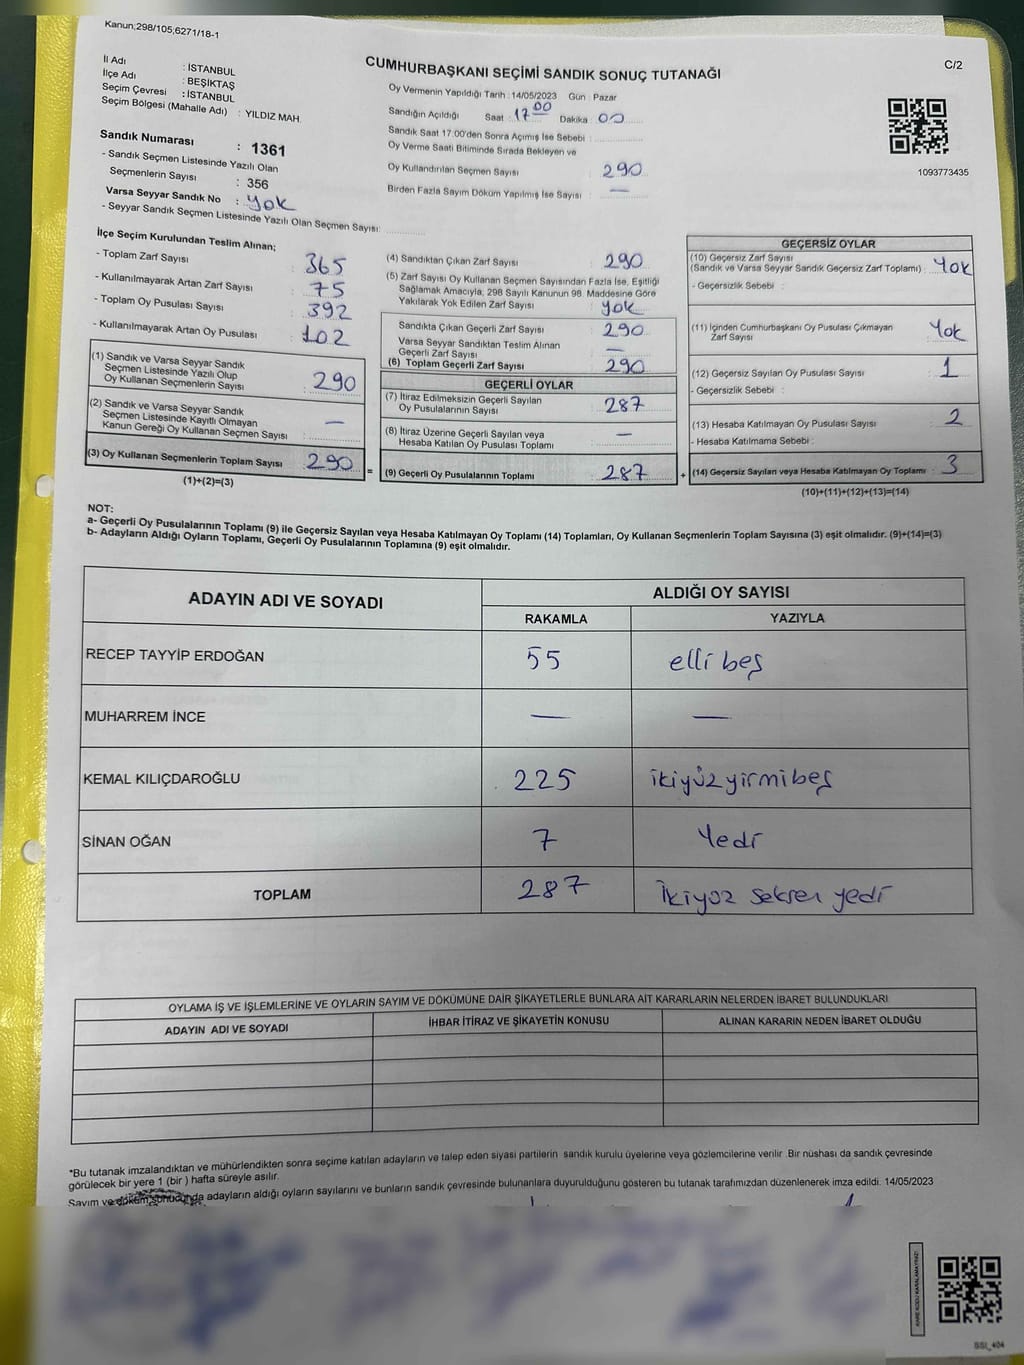 Kanun;298/105,6271/18-1
C/2
İl Adı : İSTANBUL
İlçe Adı : BEŞİKTAŞ
Seçim Çevresi : İSTANBUL
Seçim Bölgesi (Mahalle Adı) : YILDIZ MAH.
CUMHURBAŞKANI SEÇİMİ SANDIK SONUÇ TUTANAĞI
Oy Vermenin Yapıldığı Tarih : 14/05/2023 Gün : Pazar
Sandığın Açıldığı Saat : 17 00 Dakika : 00
Sandık Saat 17.00'den Sonra Açımış İse Sebebi :
Oy Verme Saati Bitiminde Sırada Bekleyen ve
Oy Kullandırılan Seçmen Sayısı : 290
Birden Fazla Sayım Döküm Yapılmış İse Sayısı : —
1093773435
Sandık Numarası : 1361
- Sandık Seçmen Listesinde Yazılı Olan
Seçmenlerin Sayısı : 356
Varsa Seyyar Sandık No : Yok
- Seyyar Sandık Seçmen Listesinde Yazılı Olan Seçmen Sayısı:
İlçe Seçim Kurulundan Teslim Alınan;
- Toplam Zarf Sayısı : 365
- Kullanılmayarak Artan Zarf Sayısı : 75
- Toplam Oy Pusulası Sayısı : 392
- Kullanılmayarak Artan Oy Pusulası : 102
(1) Sandık ve Varsa Seyyar Sandık
Seçmen Listesinde Yazılı Olup
Oy Kullanan Seçmenlerin Sayısı : 290
(2) Sandık ve Varsa Seyyar Sandık
Seçmen Listesinde Kayıtlı Olmayan
Kanun Gereği Oy Kullanan Seçmen Sayısı : —
(3) Oy Kullanan Seçmenlerin Toplam Sayısı : 290
(1)+(2)=(3)
(4) Sandıktan Çıkan Zarf Sayısı : 290
(5) Zarf Sayısı Oy Kullanan Seçmen Sayısından Fazla İse, Eşitliği
Sağlamak Amacıyla, 298 Sayılı Kanunun 98. Maddesine Göre
Yakılarak Yok Edilen Zarf Sayısı : Yok
Sandıkta Çıkan Geçerli Zarf Sayısı : 290
Varsa Seyyar Sandıktan Teslim Alınan
Geçerli Zarf Sayısı : —
(6) Toplam Geçerli Zarf Sayısı : 290
GEÇERLİ OYLAR
(7) İtiraz Edilmeksizin Geçerli Sayılan
Oy Pusulalarının Sayısı : 287
(8) İtiraz Üzerine Geçerli Sayılan veya
Hesaba Katılan Oy Pusulası Toplamı : —
= (9) Geçerli Oy Pusulalarının Toplamı : 287 +
GEÇERSİZ OYLAR
(10) Geçersiz Zarf Sayısı
(Sandık ve Varsa Seyyar Sandık Geçersiz Zarf Toplamı) : Yok
- Geçersizlik Sebebi :
(11) İçinden Cumhurbaşkanı Oy Pusulası Çıkmayan
Zarf Sayısı : Yok
(12) Geçersiz Sayılan Oy Pusulası Sayısı : 1
- Geçersizlik Sebebi :
(13) Hesaba Katılmayan Oy Pusulası Sayısı : 2
- Hesaba Katılmama Sebebi :
(14) Geçersiz Sayılan veya Hesaba Katılmayan Oy Toplamı : 3
(10)+(11)+(12)+(13)=(14)
NOT:
a- Geçerli Oy Pusulalarının Toplamı (9) ile Geçersiz Sayılan veya Hesaba Katılmayan Oy Toplamı (14) Toplamları, Oy Kullanan Seçmenlerin Toplam Sayısına (3) eşit olmalıdır. (9)+(14)=(3)
b- Adayların Aldığı Oyların Toplamı, Geçerli Oy Pusulalarının Toplamına (9) eşit olmalıdır.
ADAYIN ADI VE SOYADI ALDIĞI OY SAYISI
RAKAMLA YAZIYLA
RECEP TAYYİP ERDOĞAN 55 elli beş
MUHARREM İNCE — —
KEMAL KILIÇDAROĞLU 225 ikiyüz yirmi beş
SİNAN OĞAN 7 Yedi
TOPLAM 287 İkiyüz seksen yedi
OYLAMA İŞ VE İŞLEMLERİNE VE OYLARIN SAYIM VE DÖKÜMÜNE DAİR ŞİKAYETLERLE BUNLARA AİT KARARLARIN NELERDEN İBARET BULUNDUKLARI
ADAYIN ADI VE SOYADI İHBAR İTİRAZ VE ŞİKAYETİN KONUSU ALINAN KARARIN NEDEN İBARET OLDUĞU
*Bu tutanak imzalandıktan ve mühürlendikten sonra seçime katılan adayların ve talep eden siyasi partilerin sandık kurulu üyelerine veya gözlemcilerine verilir .Bir nüshası da sandık çevresinde
görülecek bir yere 1 (bir ) hafta süreyle asılır.
Sayım ve döküm sonucunda adayların aldığı oyların sayılarını ve bunların sandık çevresinde bulunanlara duyurulduğunu gösteren bu tutanak tarafımızdan düzenlenerek imza edildi. 14/05/2023
KARE KODU KARALAMAYINIZ!
SSI_404